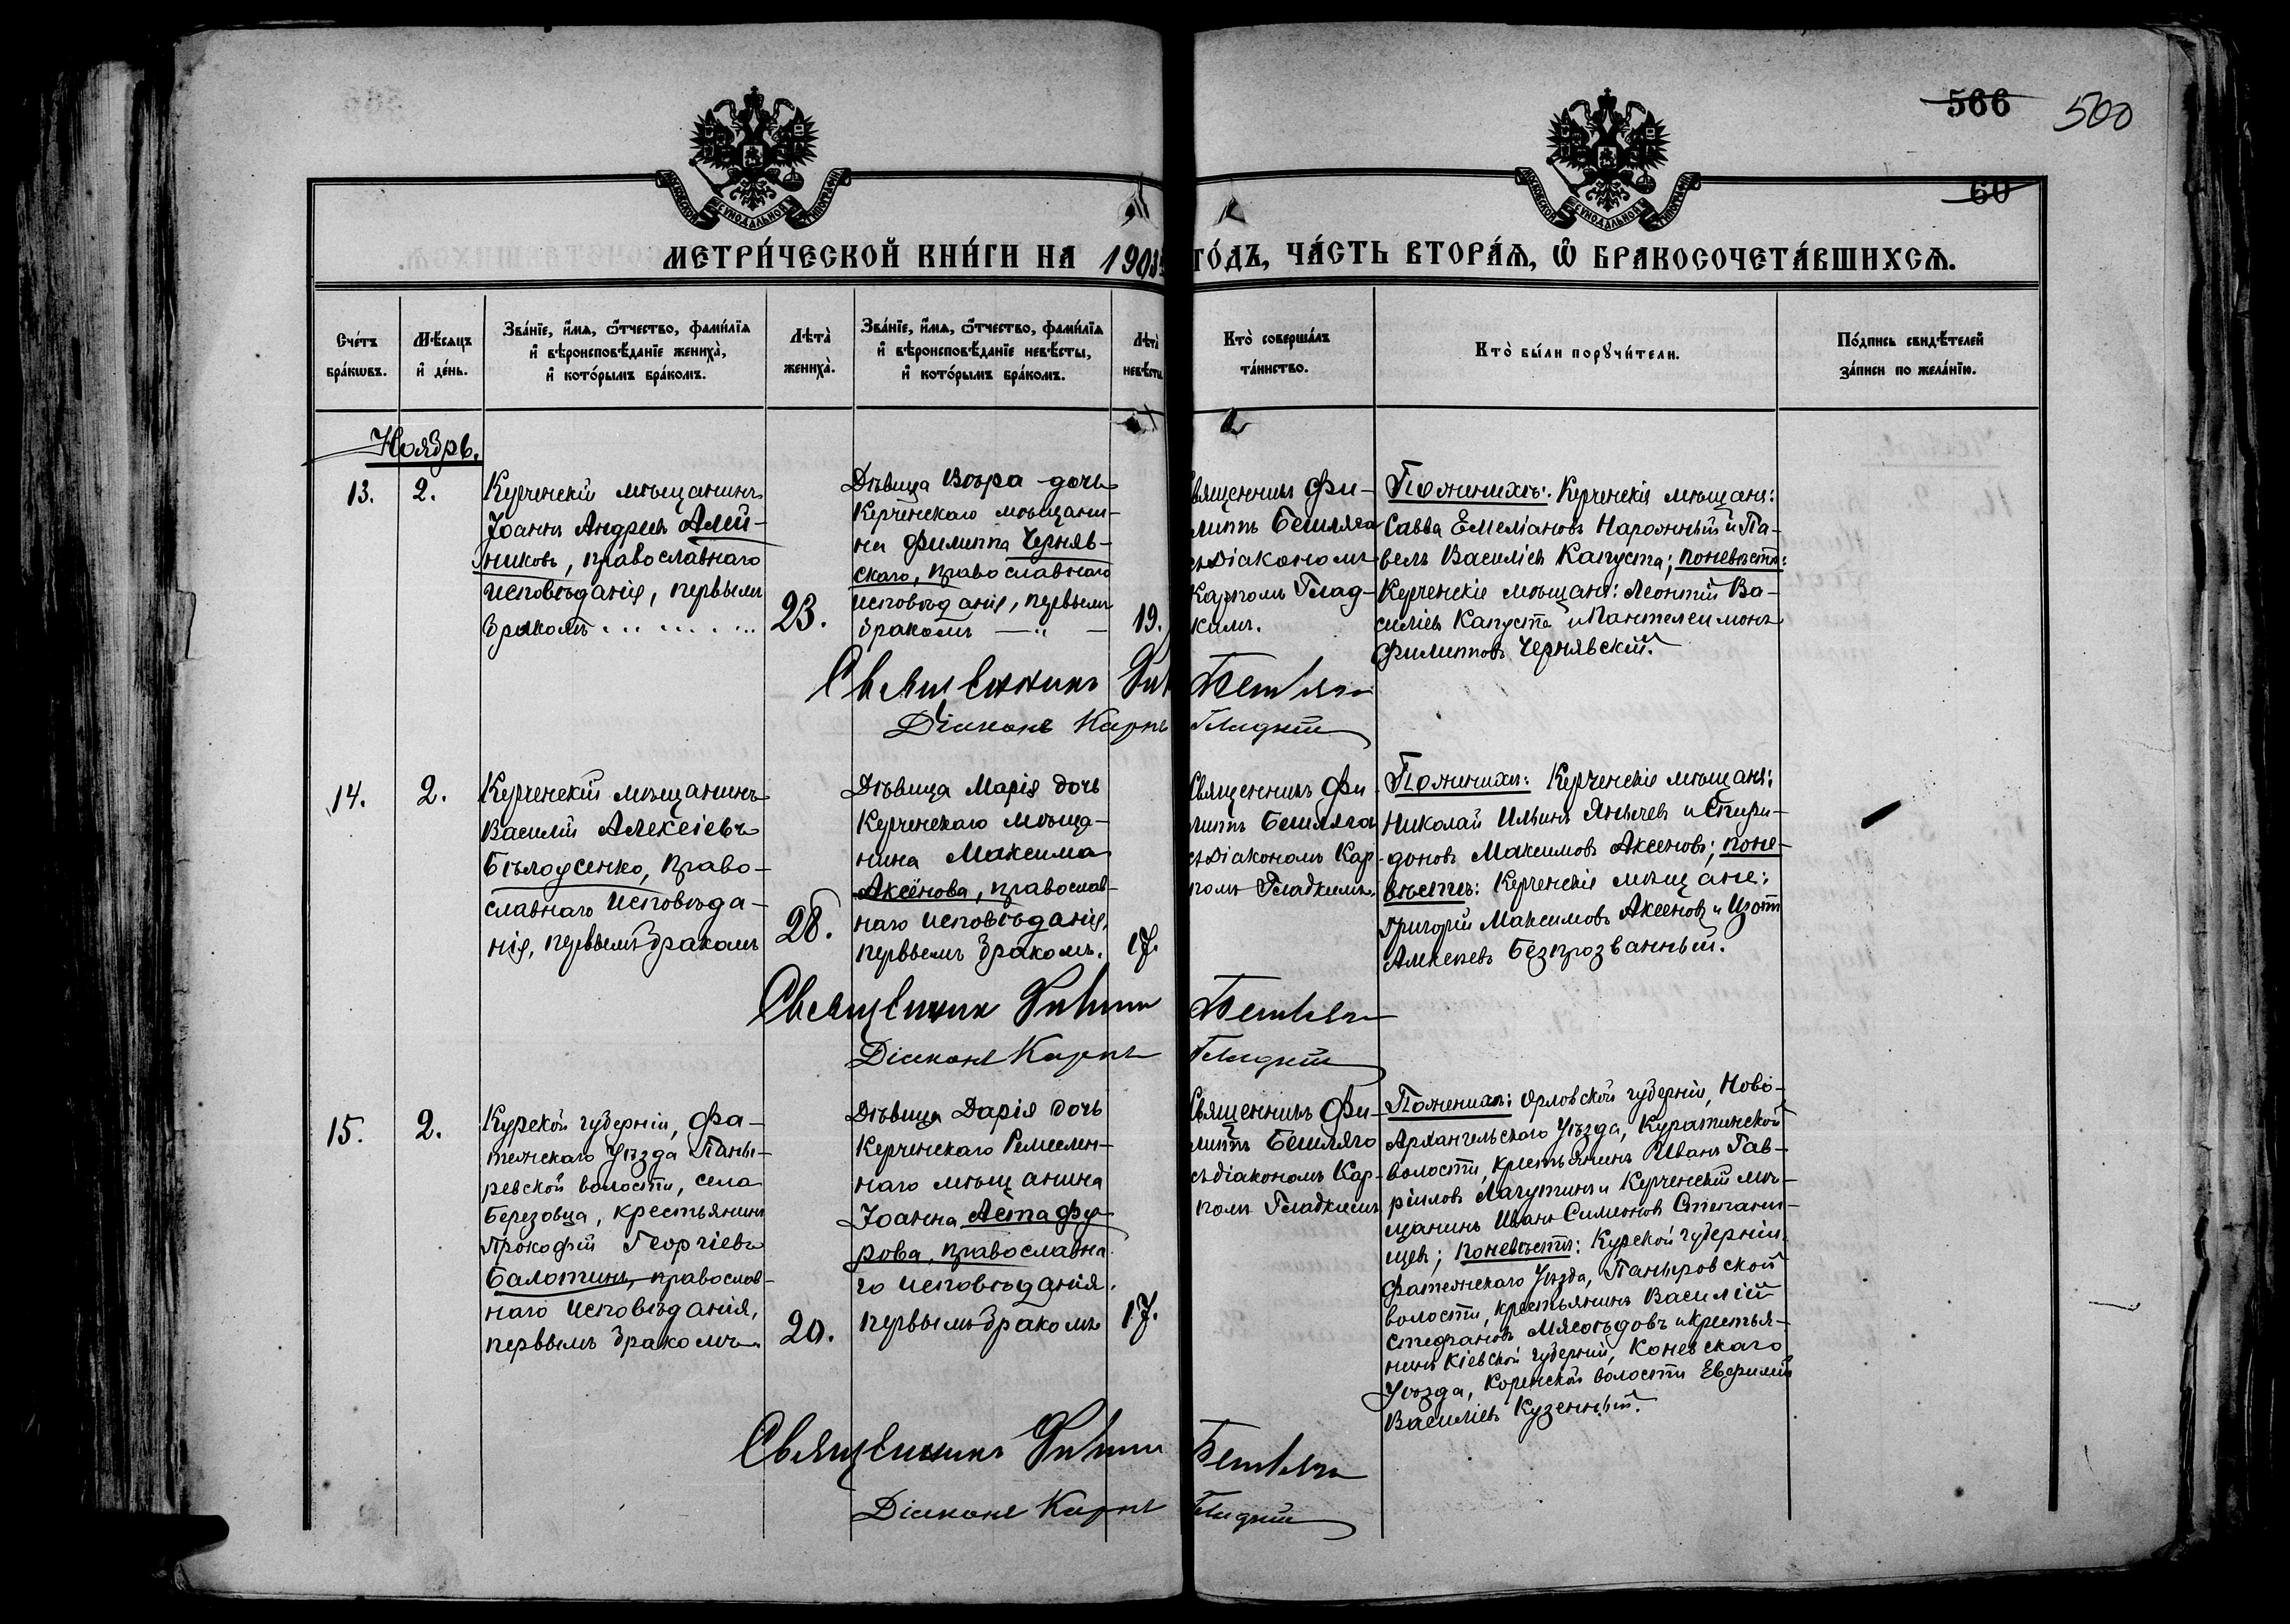 566 500
60
МОСКОВСКОЙ СѴНОДАЛЬНОЙ ТИПОГРАФІИ
МОСКОВСКОЙ СѴНОДАЛЬНОЙ ТИПОГРАФІИ
МЕТРИ́ЧЕСКОЙ КНИ́ГИ НА 1903 ГО́ДЪ, ЧА́СТЬ ВТОРА́Ѧ, Ѡ҆ БРАКОСОЧЕТА́ВШИХСѦ.
Сче́тъ
бра́кѡвъ.
Мѣ́сяцъ
и҆ де́нь.
Зва́нїе, и҆́мѧ, ѻ҆́тчество, фами́лїѧ
и҆ вѣроисповѣ́данїе жениха̀,
и҆ кото́рымъ бра́комъ.
Лѣта̀
жениха̀.
Зва́нїе, и҆́мѧ, ѻ҆́тчество, фами́лїѧ
и҆ вѣроисповѣ́данїе невѣ́сты,
и҆ кото́рымъ бра́комъ.
Лѣта̀
невѣ́сты
Кто̀ соверша́лъ
та́инство.
Кто̀ бы́ли порꙋчи́тели.
По́дпись свидѣ́телей
за́писи по жела́нїю.
Ноябрь.
13.
2.
Керченскій мѣщанинъ
Іоаннъ Андреевъ Алей-
никовъ, православнаго
исповѣданія, первымъ
бракомъ
23.
Дѣвица Вѣра дочь
Керченскаго мѣщани-
на Филиппа Черняв-
скаго, православнаго
исповѣданія, первымъ
бракомъ — " —
19.
Священникъ Фи-
липпъ Бешляга
съ діакономъ
Карпомъ Глад-
кимъ.
По женихѣ: Керченскіе мѣщане:
Савва Емеліановъ Нарожный и Па-
велъ Василіевъ Капуста; по невѣстѣ:
Керченскіе мѣщане: Леонтій Ва-
силіевъ Капуста и Пантелеимонъ
Филипповъ Чернявскій.
Священникъ Фил Бешляга
Діаконъ Карпъ Гладкій
14.
2.
Керченскій мѣщанинъ
Василій Алексіевъ
Бѣлоусенко, право-
славнаго исповѣда-
нія, первымъ бракомъ
28.
Дѣвица Марія дочь
Керченскаго мѣща-
нина Максима
Аксёнова, православ-
наго исповѣданія,
первымъ бракомъ.
17.
Священникъ Фи-
липпъ Бешляга
съ діакономъ Кар-
помъ Гладкимъ.
По женихѣ: Керченскіе мѣщане:
Николай Ильинъ Янычев и Спири-
донъ Максимовъ Аксеновъ; по не-
вѣстѣ: Керченскіе мѣщане:
Григорій Максимовъ Аксеновъ и Изотъ
Алексіевъ Безпрозванный.
Священникъ Филиппъ Бешляга
Діаконъ Карпъ Гладкій
15.
2.
Курской губерніи, Фа-
тежскаго уѣзда Паны-
ревской волости, села
Березовца, крестьянинъ
Прокофій Георгіевъ
Балотинъ, православ-
наго исповѣданія,
первымъ бракомъ
20.
Дѣвица Дарія дочь
Керченскаго Ремеслен-
наго мѣщанина
Іоанна Астафу-
рова, православна-
го исповѣданія.
первымъ бракомъ
17.
Священникъ Фи-
липпъ Бешляга
съ діакономъ Кар-
помъ Гладкимъ
По женихѣ: Орловской губерніи, Ново-
Архангельскаго уѣзда, Куратинской
волости, крестьянинъ Иванъ Гав-
ріиловъ Лагутинъ и Керченскій мѣ-
щанинъ Иванъ Симеоновъ Степани-
щевъ; по невѣстѣ: Курской губерніи,
Фатежскаго уѣзда, Паныровской
волости, крестьянинъ Василій
Стефановъ Мясоѣдовъ и крестья-
нинъ Кіевской губерніи, Коневскаго
уѣзда, Коренской волости Евфимій
Василіевъ Кузенный.
Священникъ Филиппъ Бешляга
Діаконъ Карпъ Гладкій